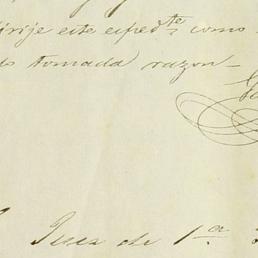 dirije este esped.te como
tomada razon—
Juez de 1.a